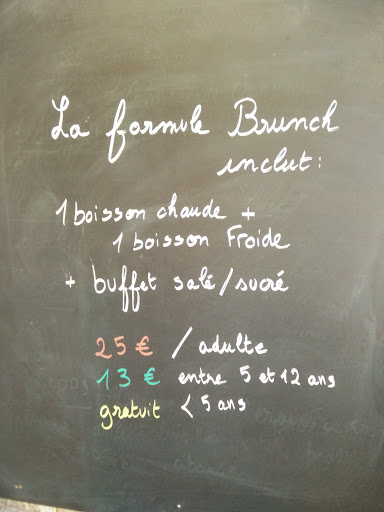 La formule Brunch
inclut :
1 boisson chaude +
1 boisson Froide
+ buffet salé/sucré
25 € / adulte
13 € entre 5 et 12 ans
gratuit < 5 ans